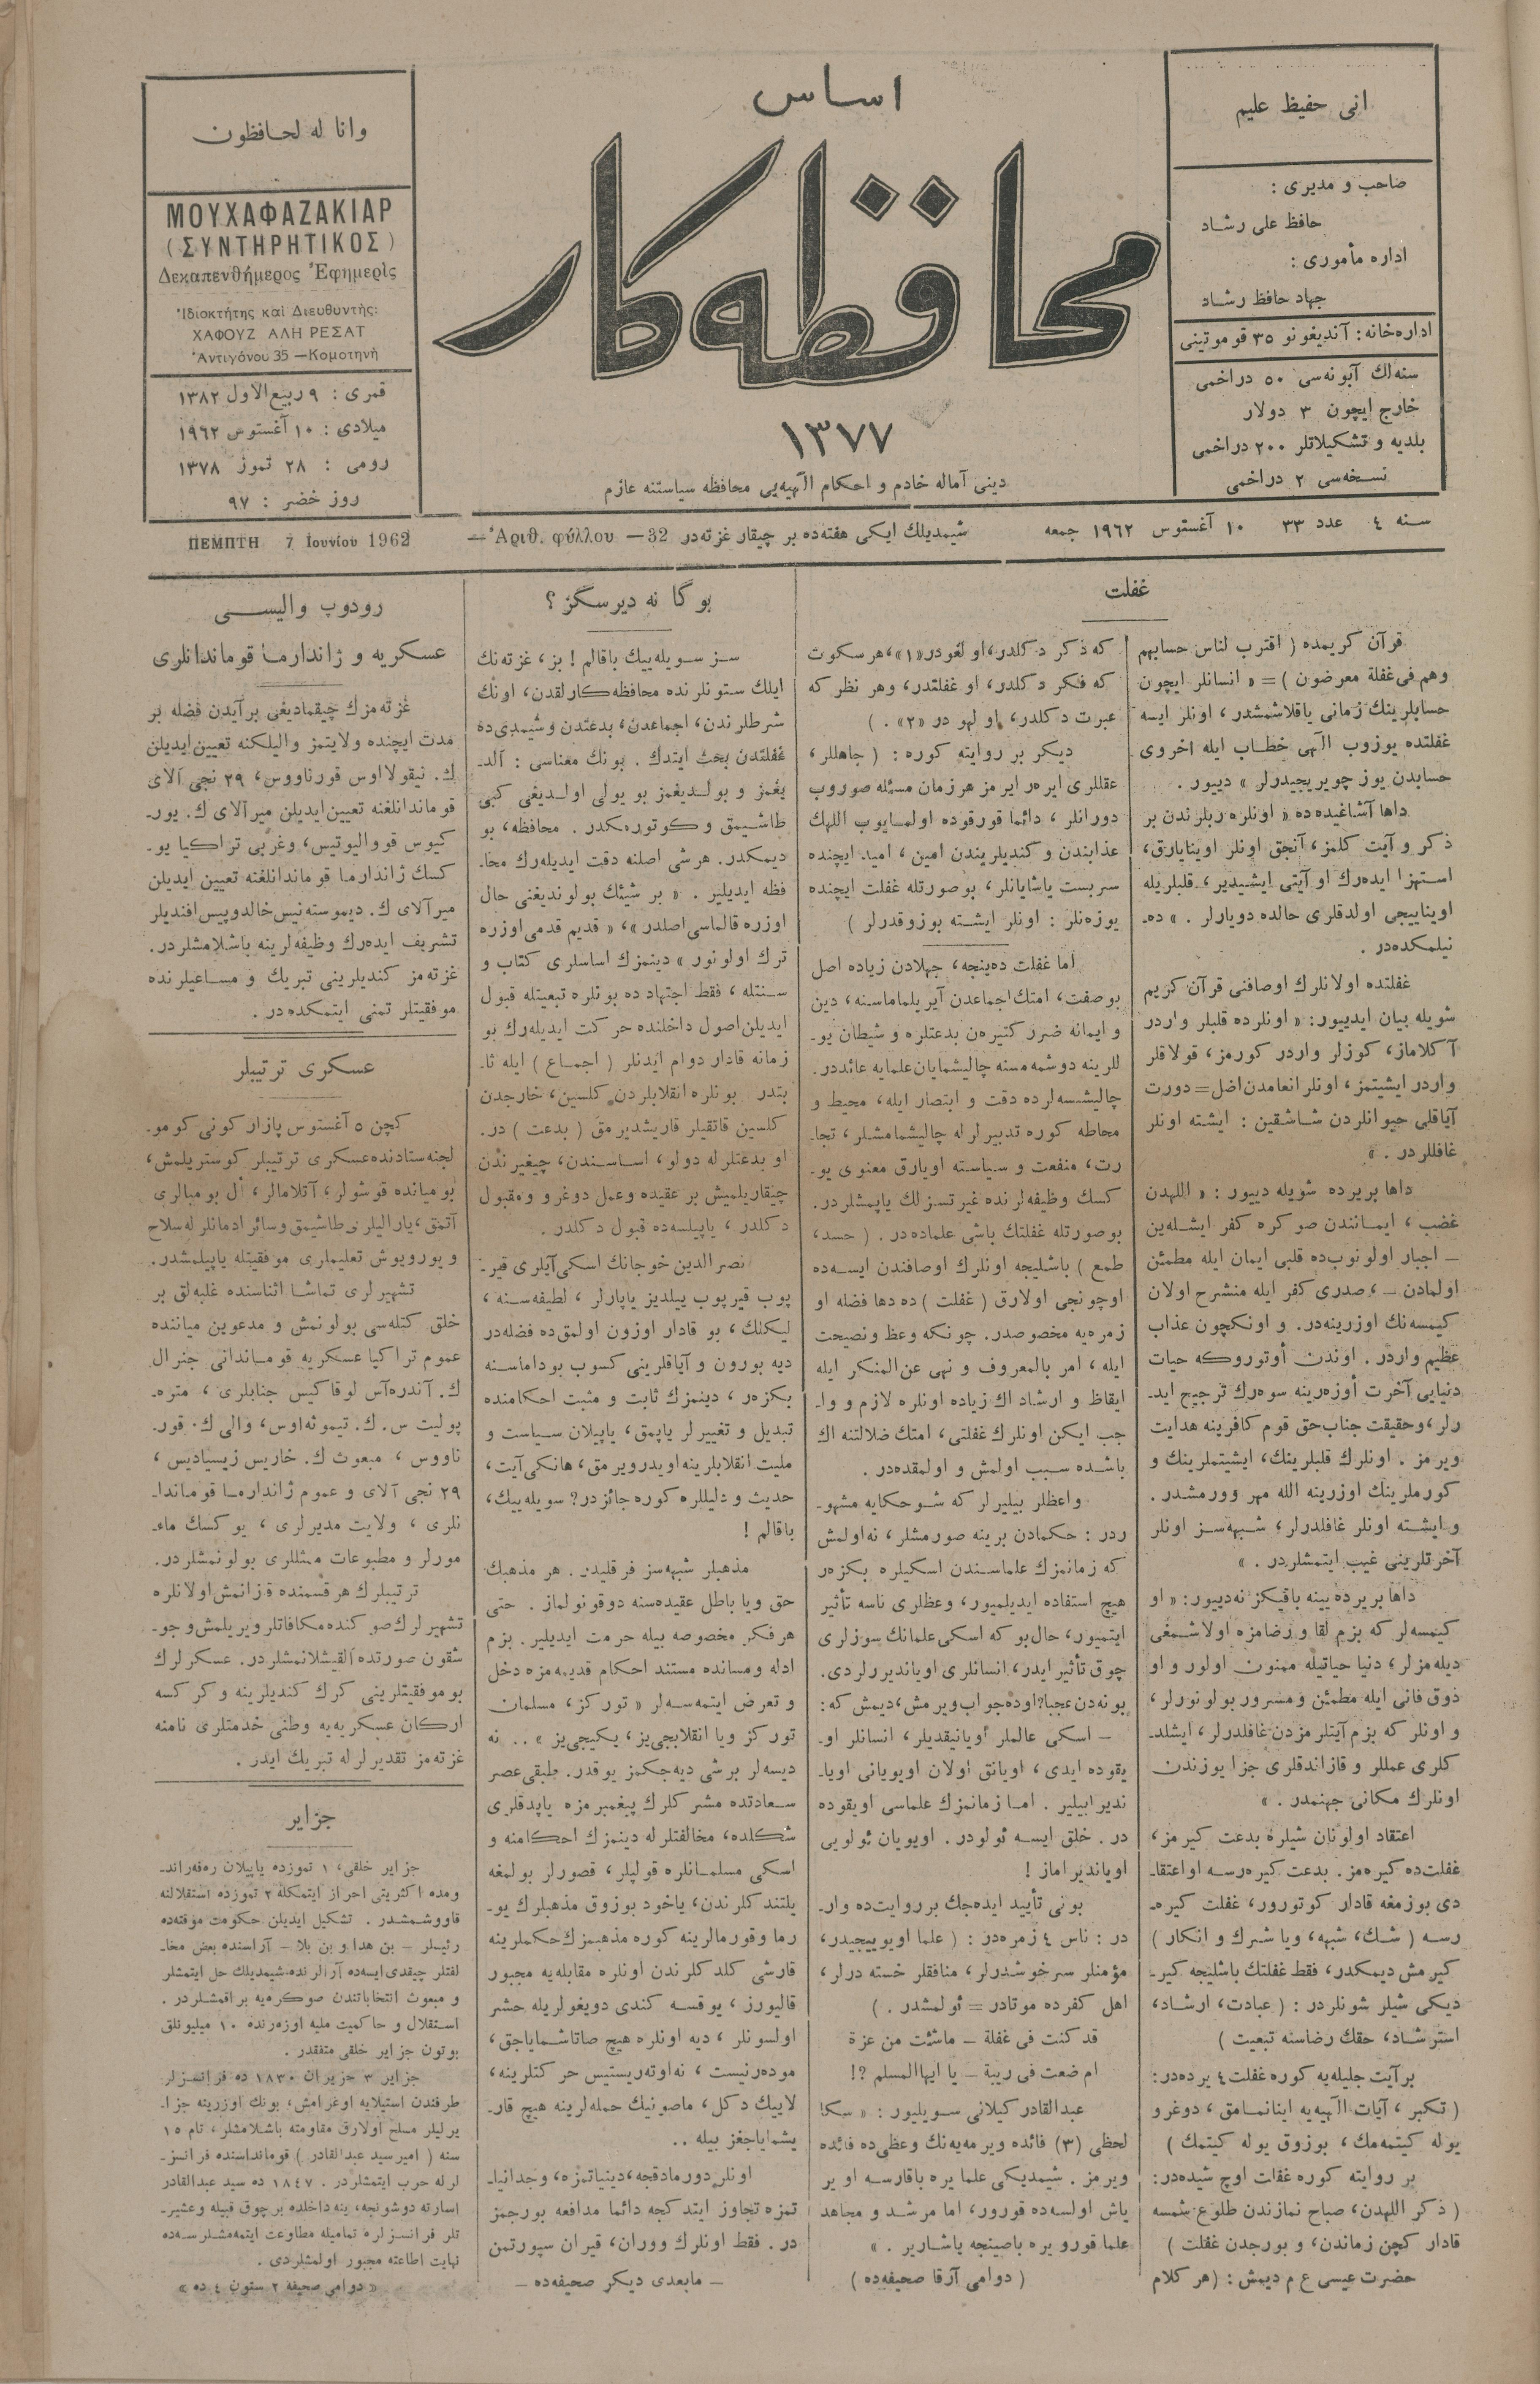 انی حفیظ علیم
صاحب و مدیری :
حافظ علی رشاد
اداره مأموری :
جهاد حافظ رشاد
اداره‌خانه : آندیغونو ۳۵ قوموتینی
سنه‌لك آبونه‌سی ۵۰ دراخمی
خارج ایچون ۳ دولار
بلدیه و تشکیلاتلر ۲۰۰ دراخمی
نسخه‌سی ۲ دراخمی
اساس
محافظه‌كار
۱۳۷۷
دینی آماله خادم و احکام الٓهیه‌یی محافظه سیاستنه عازم
وانا له لحافظون
ΜΟΥΧΑΦΑΖΑΚΙΑΡ
(ΣΥΝΤΗΡΗΤΙΚΟΣ)
Δεκαπενθήμερος Ἐφημερὶς
Ἰδιοκτήτης καὶ Διευθυντὴς:
ΧΑΦΟΥΖ ΑΛΗ ΡΕΣΑΤ
Ἀντιγόνου 35 —Κομοτηνὴ
قمری : ۹ ربیع‌الاول ۱۳۸۲
میلادی : ۱۰ آغستوس ۱۹٦۲
رومی : ۲۸ تموز ۱۳۷۸
روز خضر : ۹۷
سنه ٤ عدد ۳۳ ۱۰ آغستوس ۱۹٦۲ جمعه
شیمدیلك ایكی هفته‌ده بر چیقار غزته‌در
— Ἀριθ. φύλλου — 32
ΠΕΜΠΤΗ 7 Ιουνίου 1962
غفلت
قرآن كریمده ( اقترب لناس حسابهم
وهم فی غفلة معرضون ) = « انسانلر ایچون
حسابلرینك زمانی یاقلاشمشدر ، اونلر ایسه
غفلتده یوزوب الٓهی خطاب ایله اخروی
حسابدن یوز چویریجیدرلر » دییور .
داها آشاغیده‌ده « اونلره ربلرندن بر
ذكر و آیت كلمز ، آنجق اونلر اوینایارق ،
استهزا ایده‌رك او آیتی ایشیدیر ، قلبلریله
اویناییجی اولدقلری حالده دویارلر . » ده‌ـ
نیلمكده‌در .
غفلتده اولانلرك اوصافنی قرآن كریم
شویله بیان ایدییور : « اونلرده قلبلر واردر
آكلاماز ، كوزلر واردر كورمز ، قولاقلر
واردر ایشیتمز ، اونلر انعامدن اضل = دورت
آیاقلی حیوانلردن شاشقین : ایشته اونلر
غافللردر . »
داها بریرده شویله دییور : « اللهدن
غضب ، ایمانندن صوكره كفر ایشله‌ین
— اجبار اولونوب‌ده قلبی ایمان ایله مطمئن
اولمادن — ، صدری كفر ایله منشرح اولان
كیمسه‌نك اوزرینه‌در . و اونكچون عذاب
عظیم واردر . اوندن أوتوروكه حیات
دنیایی آخرت أوزه‌رینه سوه‌رك ترجیح ایدـ
رلر ، وحقیقت جناب‌حق قوم كافرینه هدایت
ویرمز . اونلرك قلبلرینك ، ایشیتملرینك و
كورملرینك اوزرینه الله مهر وورمشدر .
و ایشته اونلر غافلدرلر ، شبهه‌سز اونلر
آخرتلرینی غیب ایتمشلردر . »
داها بریرده یینه باقیكز نه‌دییور : « او
كیمسه‌لر كه بزم لقا و رضامزه اولاشمغی
دیله‌مزلر ، دنیا حیاتیله ممنون اولور و او
ذوق فانی ایله مطمئن و مسرور بولونورلر ،
و اونلر كه بزم آیتلرمزدن غافلدرلر ، ایشلدـ
كلری عمللر و قازاندقلری جزا یوزندن
اونلرك مكانی جهنمدر . »
اعتقاد اولونان شیلره بدعت كیرمز ،
غفلت‌ده كیره‌مز . بدعت كیره‌رسه او اعتقاـ
دی بوزمغه قادار كوتورور ، غفلت كیره‌ـ
رسه ( شك ، شبهه ، ویا شرك و انكار )
كیرمش دیمكدر ، فقط غفلتك باشلیجه كیرـ
دیكی شیلر شونلردر : ( عبادت ، ارشاد ،
استرشاد ، حقك رضاسنه تبعیت )
برآیت جلیله‌یه كوره غفلت ٤ یرده‌در :
( تكبر ، آیات الٓهیه‌یه اینانمامق ، دوغرو
یوله كیتمه‌مك ، بوزوق یوله كیتمك )
بر روایته كوره غفات اوچ شیده‌در :
( ذكر اللهدن ، صباح نمازندن طلوع شمسه
قادار كچن زماندن ، و بورجدن غفلت )
حضرت عیسی ع م دیمش : ( هر كلام
كه ذكر دكلدر ، او لغودر «۱» ، هر سكوت
كه فكر دكلدر ، او غفلتدر ، وهر نظر كه
عبرت دكلدر ، او لهو در «۲» . )
دیكر بر روایته كوره : ( جاهللر ،
عقللری ایره‌ر ایرمز هرزمان مسئله صوروب
دورانلر ، دائما قورقوده اولمایوب اللهك
عذابندن و كندیلریندن امین ، امید ایچنده
سربست یاشایانلر ، بوصورتله غفلت ایچنده
یوزه‌نلر : اونلر ایشته بوزوقدرلر )
اما غفلت ده‌ینجه ، جهلادن زیاده اصل
بوصفت ، امتك اجماعدن آیریلماماسنه ، دین
و ایمانه ضرر كتیره‌ن بدعتلره و شیطان یوـ
للرینه دوشمه‌مسنه چالیشمایان علمایه عائددر .
چالیشسه‌لرده دقت و ابتصار ایله ، محیط و
محاطه كوره تدبیرلر له چالیشمامشلر ، تجاـ
رت ، منفعت و سیاسته اویارق معنوی یوـ
كسك وظیفه‌لرنده غیرتسزلك یاپمشلردر .
بوصورتله غفلتك باشی علماده‌در . ( حسد ،
طمع ) باشلیجه اونلرك اوصافندن ایسه‌ده
اوچونجی اولارق ( غفلت ) ده دها فضله او
زمره‌یه مخصوصدر . چونكه وعظ و نصیحت
ایله ، امر بالمعروف و نهی عن‌المنكر ایله
ایقاظ و ارشاد اك زیاده اونلره لازم و واـ
جب ایكن اونلرك غفلتی ، امتك ضلالتنه اك
باشده سبب اولمش و اولمقده‌در .
واعظلر بیلیرلر كه شو حكایه مشهوـ
ردر : حكمادن برینه صورمشلر ، نه‌اولمش
كه زمانمزك علماسندن اسكیلره بكزه‌ر
هیچ استفاده ایدیلمیور ، وعظلری ناسه تأثیر
ایتمیور ، حال‌بو كه اسكی علمانك سوزلری
چوق تأثیر ایدر ، انسانلری اویاندیررلردی .
بونه‌دن عجبا ? اوده‌جواب ویرمش ، دیمش كه :
— اسكی عالملر أویانیقدیلر ، انسانلر اوـ
یقوده ایدی ، اویانق اولان اویویانی اویاـ
ندیرابیلیر . اما زمانمزك علماسی اویقوده
در . خلق ایسه ئولودر . اویویان ئولویی
اویاندیراماز !
بونی تأیید ایده‌جك بر روایت‌ده وارـ
در : ناس ٤ زمره‌در : ( علما اویوییجیدر ،
مؤمنلر سرخوشدرلر ، منافقلر خسته درلر ،
اهل كفرده موتادر = ئولمشدر . )
قد كنت فی غفلة — ماشئت من عزة
ام ضعت فی ریبة — یا ایهاالمسلم ?!
عبدالقادر كیلانی سویلیور : « سكا
لحظی (۳) فائده ویرمه‌یه‌نك وعظی‌ده فائده
ویرمز . شیمدیكی علما یره باقارسه او یر
یاش اولسه‌ده قورور ، اما مرشد و مجاهد
علما قورو یره باصینجه یاشاریر . »
( دوامی آرقا صحیفه‌ده )
بوكا نه دیرسگز ؟
سز سویله‌ییك باقالم ! بز ، غزته‌نك
ایلك ستونلرنده محافظه‌كارلقدن ، اونك
شرطلرندن ، اجماعدن ، بدعتدن و شیمدی‌ده
غفلتدن بحث ایتدك . بونك معناسی : آلدـ
یغمز و بولدیغمز بو یولی اولدیغی كبی
طاشیمق و كوتورمكدر . محافظه ، بو
دیمكدر . هرشی اصلنه دقت ایدیله‌رك محاـ
فظه ایدیلیر . « بر شیئك بولوندیغی حال
اوزره قالماسی اصلدر » ، « قدیم قدمی اوزره
ترك اولونور » دینمزك اساسلری كتاب و
سنتله ، فقط اجتهاد ده بونلره تبعیتله قبول
ایدیلن اصول داخلنده حركت ایدیله‌رك بو
زمانه قادار دوام ایدنلر ( اجماع ) ایله ثاـ
بتدر . بونلره انقلابلردن كلسین ، خارجدن
كلسین قاتقیلر قاریشدیرمق ( بدعت ) در .
او بدعتلر له دولو ، اساسندن ، چیغیرندن
چیقاریلمیش بر عقیده وعمل دوغرو ومقبول
دكلدر ، یاپیلسه‌ده قبول دكلدر .
نصرالدین خوجانك اسكی آیلری قیرـ
پوب قیرپوب ییلدیز یاپارلر ، لطیفه‌سنه ،
لیكلك ، بو قادار اوزون اولمق‌ده فضله‌در
دیه بورون و آیاقلرینی كسوب بوداماسنه
بكزه‌ر ، دینمزك ثابت و مثبت احكامنده
تبدیل و تغییرلر یاپمق ، یاپیلان سیاست و
ملیت انقلابلرینه اویدرویرمق ، هانكی آیت ،
حدیث و دلیللره كوره جائزدر ? سویله‌ییك ،
باقالم !
مذهبلر شبهه‌سز فرقلیدر . هر مذهبك
حق ویا باطل عقیده‌سنه دوقونولماز . حتی
هرفكر مخصوصه بیله حرمت ایدیلیر . بزم
ادله ومسانده مستند احكام قدیمه‌مزه دخل
و تعرض ایتمه‌سه‌لر « تورکز ، مسلمان
توركز ویا انقلابجی‌یز ، یكیجی‌یز » .. نه
دیسه‌لر برشی دیه‌جكمز یوقدر . طبقی‌عصر
سعادتده مشركلرك پیغمبرمزه یاپدقلری
شكلده ، مخالفتلر له دینمزك احكامنه و
اسكی مسلمانلره قولپلر ، قصورلر بولمغه
یلتندكلرندن ، یاخود بوزوق مذهبلرك یوـ
رما وقورمالرینه كوره مذهبمزك حكملرینه
قارشی كلدكلرندن اونلره مقابله‌یه مجبور
قالیورز ، یوقسه كندی دویغولریله حشر
اولسونلر ، دیه اونلره هیچ صاتاشمایاجق ،
موده‌رنیست ، نه‌اوته‌ریستیس حركتلرینه ،
لاییك دكل ، ماصونیك حمله‌لرینه هیچ قارـ
یشمایاجغز بیله ..
اونلر دورمادقجه ، دینیاتمزه ، وجدانیاـ
تمزه تجاوز ایتدكجه دائما مدافعه بورجمز
در . فقط اونلرك ووران ، قیران سپورتمن
— مابعدی دیكر صحیفه‌ده —
رودوپ والیسی
عسكریه و ژاندارما قوماندانلری
غزته‌مزك چیقمادیغی برآیدن فضله بر
مدت ایچنده ولایتمز والیلكنه تعیین‌ایدیلن
ك. نیقولااوس قورناووس ، ۲۹ نجی آلای
قوماندانلغنه تعیین‌ایدیلن میرآلای ك. یورـ
كیوس قووالیوتیس ، وغربی تراكیا یوـ
كسك ژاندارما قوماندانلغنه تعیین ایدیلن
میرآلای ك. دیموسته‌نیس خالدوپیس افندیلر
تشریف ایده‌رك وظیفه‌لرینه باشلامشلردر .
غزته‌مز كندیلرینی تبریك و مساعیلرنده
موفقیتلر تمنی ایتمكده‌در .
عسكری ترتیبلر
كچن ۵ آغستوس پازار كونی كوموـ
لجنه‌ستادنده‌عسكری ترتیبلر كوستریلمش ،
بومیانده قوشولر ، آتلامالر ، أل بومبالری
آتمق ، یارالیلری طاشیمق و سائر ادمانلر له سلاح
و یورویوش تعلیملری موفقیتله یاپیلمشدر .
تشهیرلری تماشا اثناسنده غلبه‌لق بر
خلق كتله‌سی بولونمش و مدعوین میاننده
عموم تراكیا عسكریه قوماندانی جنرال
ك. آندره‌آس لوقاكیس جنابلری ، متره‌ـ
پولیت س. ك. تیموثه‌اوس ، والی ك. قورـ
ناووس ، مبعوث ك. خاریس زیسیادیس ،
۲۹ نجی آلای و عموم ژاندارما قومانداـ
نلری ، ولایت مدیرلری ، یوكسك ماءـ
مورلر و مطبوعات ممثللری بولونمشلردر .
ترتیبلرك هرقسمنده قزانمش‌اولانلره
تشهیرلرك‌صوكنده مكافاتلر ویریلمش و جوـ
شقون صورتده آلقیشلانمشلردر . عسكرلرك
بو موفقیتلرینی كرك كندیلرینه و كركسه
اركان عسكریه‌یه وطنی خدمتلری نامنه
غزته‌مز تقدیرلر له تبریك ایدر .
جزایر
جزایر خلقی ، ۱ تموزده یاپیلان ره‌فه‌راندـ
ومده اكثریتی احراز ایتمكله ۲ تموزده استقلالنه
قاووشمشدر . تشكیل ایدیلن حكومت موقته‌ده
رئیسلر — بن هدا و بن بلا — آراسنده بعض مخاـ
لفتلر چیقدی ایسه‌ده آرالرنده‌شیمدیلك حل ایتمشلر
و مبعوث انتخاباتندن صوكره‌یه براقمشلردر .
استقلال و حاكمیت ملیه اوزه‌رنده ۱۰ میلیونلق
بوتون جزایر خلقی متفقدر .
جزایر ۳ حزیران ۱۸۳۰ ده فرانسزلر
طرفندن استیلایه اوغرامش ، بونك اوزرینه جزاـ
یرلیلر مسلح اولارق مقاومته باشلامشلر ، تام ۱۵
سنه ( امیر سید عبدالقادر ) قومانداسنده فرانسزـ
لر له حرب ایتمشلردر . ۱۸٤۷ ده سید عبدالقادر
اسارته دوشونجه ، ینه داخلده برچوق قبیله وعشیرـ
تلر فرانسزلره تمامیله مطاوعت ایتمه‌مشلرسه‌ده
نهایت اطاعته مجبور اولمشلردی .
« دوامی صحیفه ۲ ستون ٤ ده »